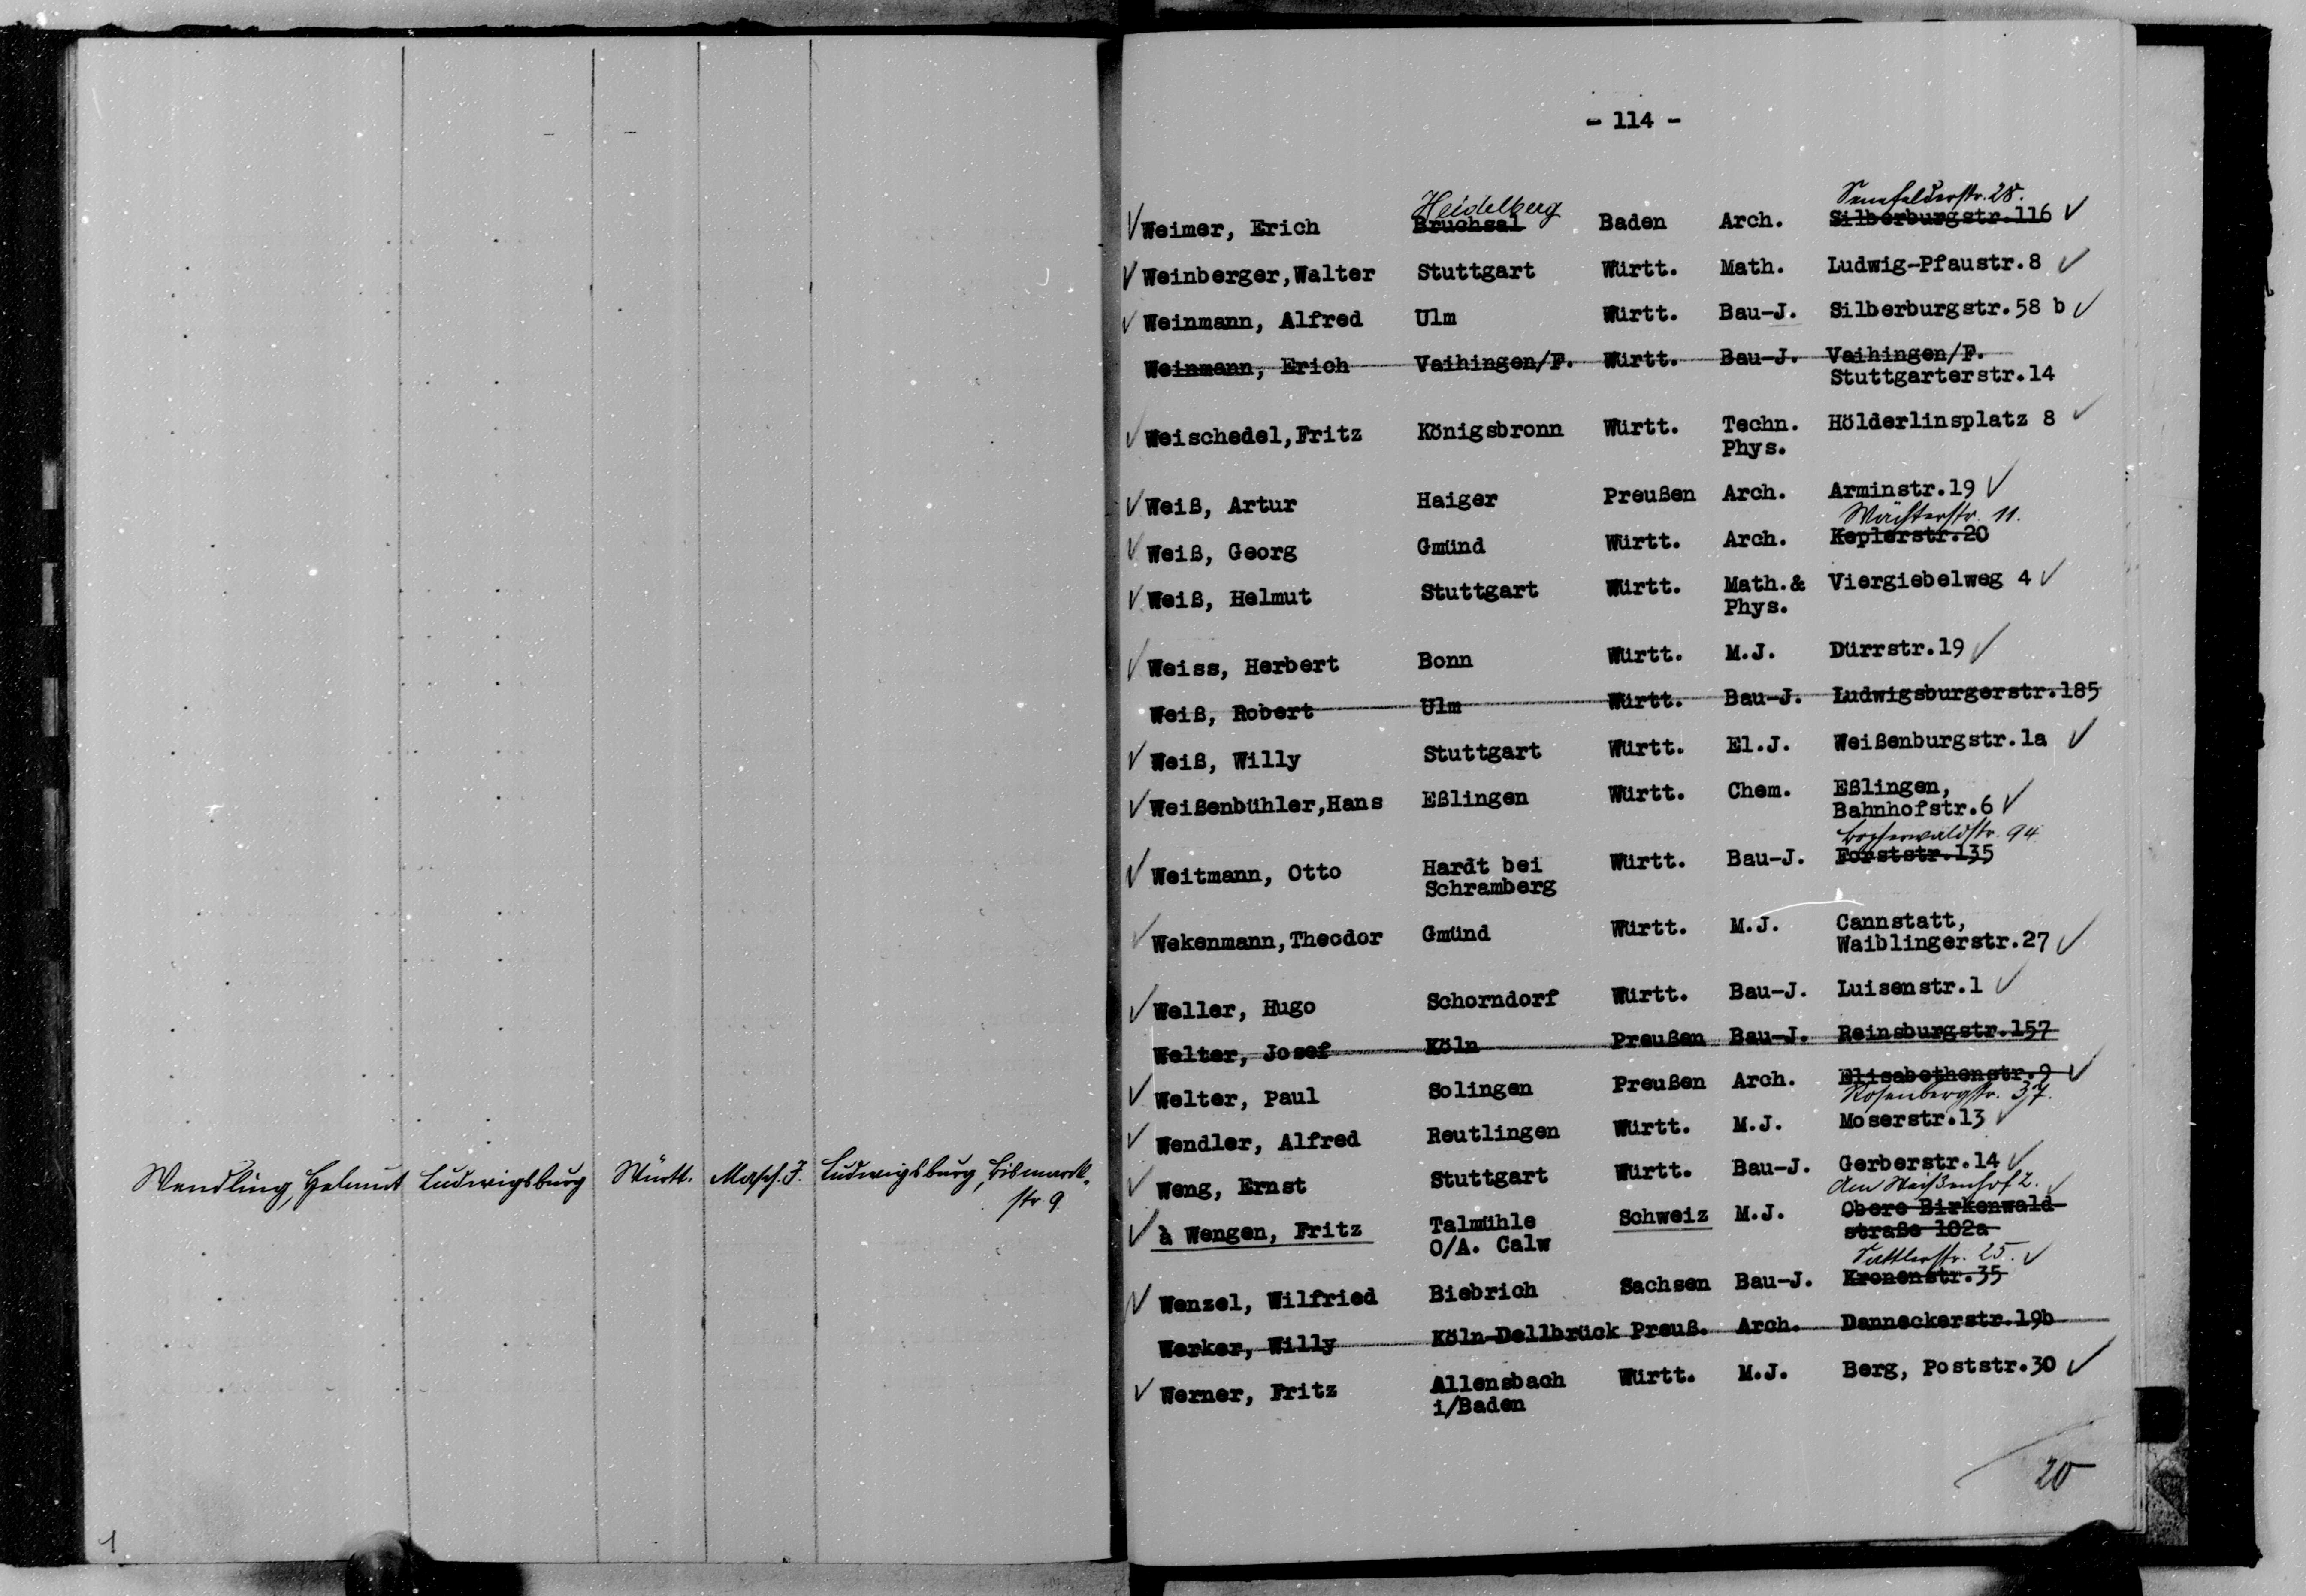 Wendling, Helmut Ludwigsburg Württ. Masch.J. Ludwigsburg, Bismarck-
str. 9
1
- 114 -
Heidelberg Senefelderstr. 28.
Weimer, Erich Bruchsal Baden Arch. Silberburgstr.116
Weinberger,Walter Stuttgart Württ. Math. Ludwig-Pfaustr.8
Weinmann, Alfred Ulm Württ. Bau-J. Silberburgstr.58 b
Weinmann, Erich Vaihingen/F. Württ. Bau-J. Vaihingen/F.
Stuttgarterstr.14
Weischedel,Fritz Königsbronn Württ. Techn. Hölderlinsplatz 8
Phys.
Weiß, Artur Haiger Preußen Arch. Arminstr.19
Wächterstr. 11.
Weiß, Georg Gmünd Württ. Arch. Keplerstr.20
Weiß, Helmut Stuttgart Württ. Math.& Viergiebelweg 4
Phys.
Weiss, Herbert Bonn Württ. M.J. Dürrstr.19
Weiß, Robert Ulm Württ. Bau-J. Ludwigsburgerstr.185
Weiß, Willy Stuttgart Württ. El.J. Weißenburgstr.1a
Weißenbühler,Hans Eßlingen Württ. Chem. Eßlingen,
Bahnhofstr.6
Bopserwaldstr. 94
Weitmann, Otto Hardt bei Württ. Bau-J. Forststr.135
Schramberg
Wekenmann,Theodor Gmünd Württ. M.J. Cannstatt,
Waiblingerstr.27
Weller, Hugo Schorndorf Württ. Bau-J. Luisenstr.1
Welter, Josef Köln Preußen Bau-J. Reinsburgstr.157
Welter, Paul Solingen Preußen Arch. Elisabethenstr.9
Rosenbergstr. 37.
Wendler, Alfred Reutlingen Württ. M.J. Moserstr.13
Weng, Ernst Stuttgart Württ. Bau-J. Gerberstr.14
Am Weißenhof 2.
à Wengen, Fritz Talmühle Schweiz M.J. Obere Birkenwald-
O/A. Calw straße 102a
Sattlerstr. 25.
Wenzel, Wilfried Biebrich Sachsen Bau-J. Kronenstr.35
Werker, Willy Köln-Dellbrück Preuß. Arch. Danneckerstr.19b
Werner, Fritz Allensbach Württ. M.J. Berg, Poststr.30
i/Baden
20